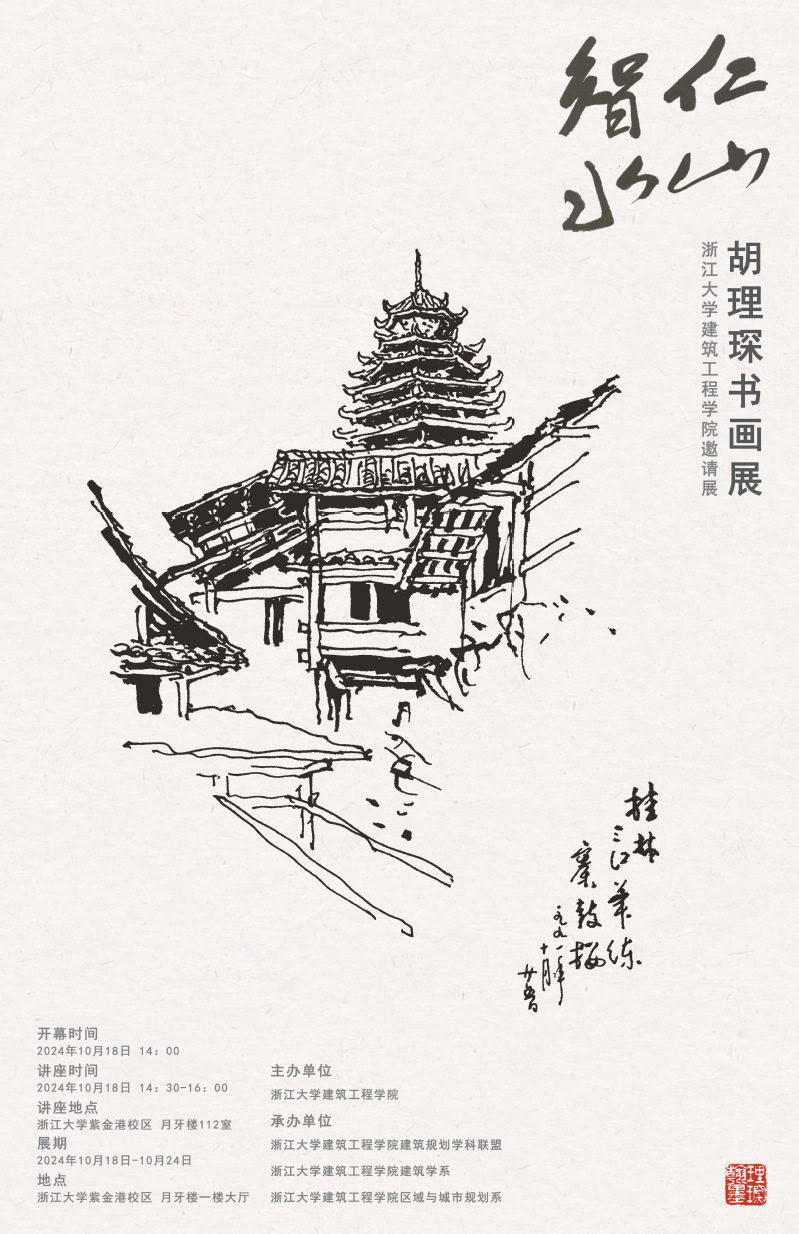 仁山
智水
胡理琛书画展
浙江大学建筑工程学院邀请展
桂林
三江华练
寨鼓楼
一九九一年
十月
廿五日
开幕时间
2024年10月18日 14：00
讲座时间
2024年10月18日 14：30-16：00
讲座地点
浙江大学紫金港校区 月牙楼112室
展期
2024年10月18日-10月24日
地点
浙江大学紫金港校区 月牙楼一楼大厅
主办单位
浙江大学建筑工程学院
承办单位
浙江大学建筑工程学院建筑规划学科联盟
浙江大学建筑工程学院建筑学系
浙江大学建筑工程学院区域与城市规划系
理琛
翰墨